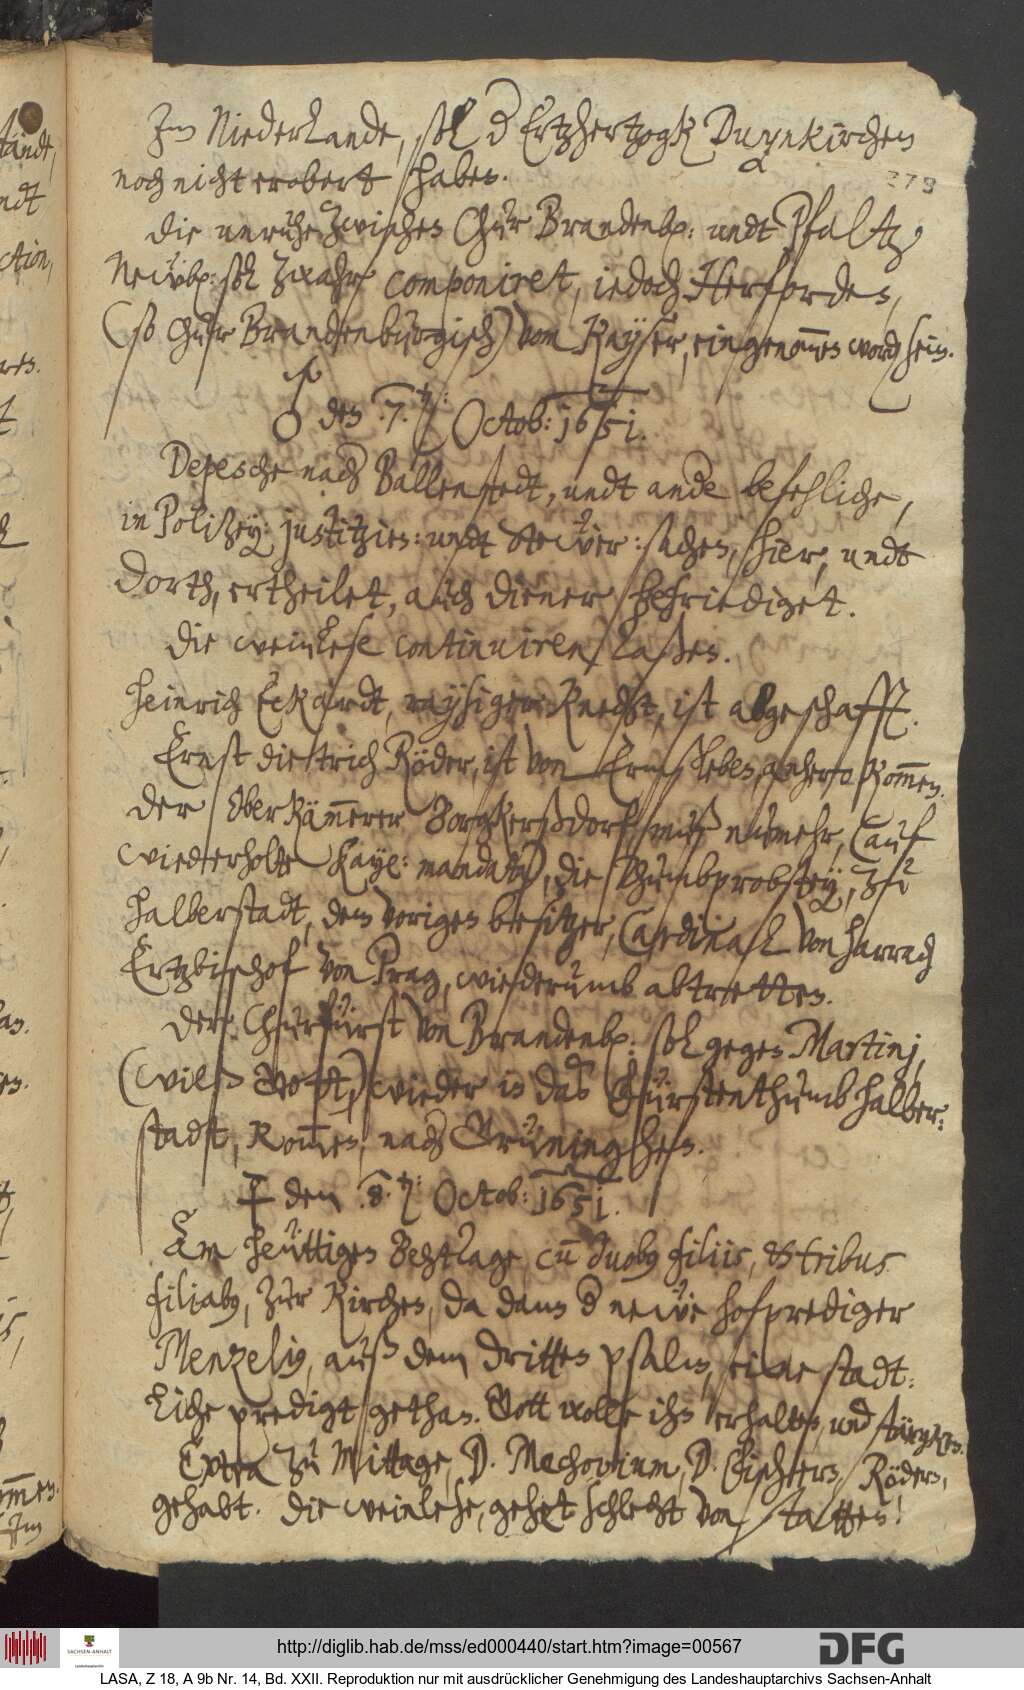 Im Niederlande, soll der Ertzhertzogk Duynkirchen
278
noch nicht erobert haben.
Die unruhe zwischen Chur Brandenb: undt Pfaltz
Neẅb: soll zwahr componiret, iedoch Herforden,
(so Chur Brandenburgisch) vom Kayser, eingenommen worden sein.
♂ den .7.den: Octob: 1651.
Depesche nach Ballenstedt, undt andere befehliche,
in Polizey: justitzien: undt Steẅer: sachen, hier, undt
dorth, ertheilet, auch diener befriediget.
Die weinlese continuiren laßen.
Heinrich Eckardt, raysiger Knecht, ist abgeschafft.
Ernst Dietrich Röder, ist von Ermßleben, anhero kommen.
Der OberKämmerer Borgkerßdorf muß nunmehr, (auf
wiederholte Kayl: mandata), die Thumbprobstey, zu
Halberstadt, dem vorigen besitzer, Cardinal von Harrach
Ertzbischof von Prag, wiederumb abtretten.
Der Churfürst von Brandenb: soll gegen Martinj,
(wilß Gott,) wieder in das Fürstenthumb Halber:
stadt, kommen, nach Grüningen.
☿ den .8.ten: Octob: 1651.
Am heüttigen Behttage, cum duobus filiis, et tribus
filiabus, zur Kirchen, da dann der neẅe hofprediger
Menzelius, auß dem dritten psalm, eine stadt:
liche predigt gethan. Gott wolle ihn erhalten, und stärcken.
Extra zu Mittage, D. Mechovium, D. Fischern, Rödern,
gehabt. Die weinlese, gehet schlecht von statten!
http://diglib.hab.de/mss/ed000440/start.htm?image=00567
SACHSEN-ANHALT
DFG
LASA, Z 18, A 9b Nr. 14, Bd. XXII. Reproduktion nur mit ausdrücklicher Genehmigung des Landeshauptarchivs Sachsen-Anhalt